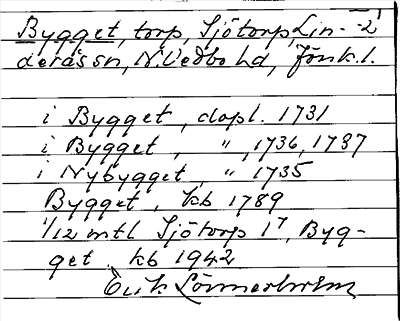 Bygget, torp, Sjötorp, Lin- -2
deråssn, N. Vedbo hd, Jönk. l.
i Bygget, dopl. 1731
i Bygget, " , 1736, 1787
i Nybygget, " 1735
Bygget, kb 1789
1/12 mtl Sjötorp 1⁷, Byg-
get kb 1942
Erik Lönnerholm